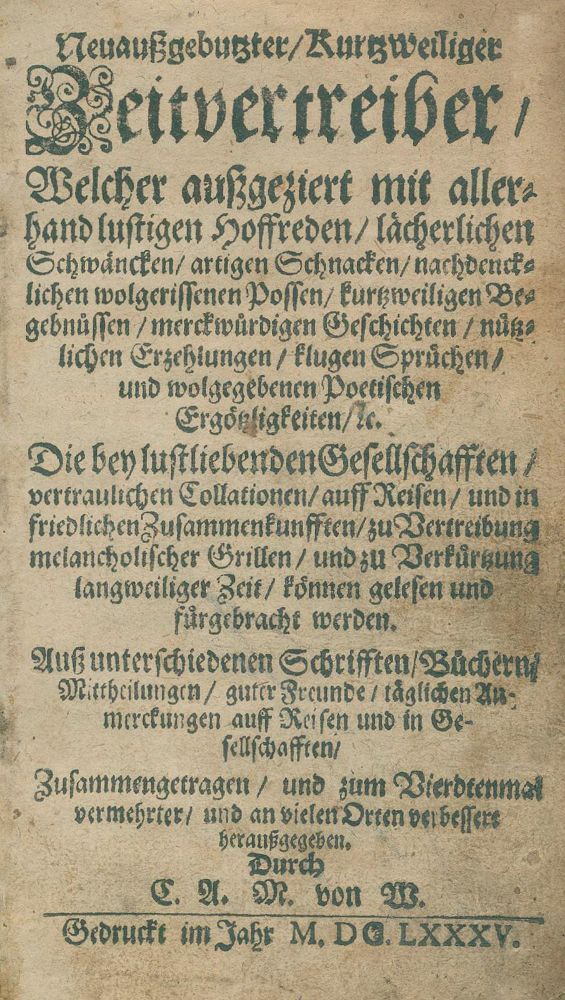 Neuaußgebutzter/Kurtzweiliger
Zeitvertreiber/
Welcher außgeziert mit aller-
hand lustigen Hoffreden/ lächerlichen
Schwäncken/ artigen Schnacken/ nachdenck-
lichen wolgerissenen Possen/ kurtzweiligen Be-
gebnüssen/ merckwürdigen Geschichten/ nütz-
lichen Erzehlungen/ klugen Sprüchen/
und wolgegebenen Poetischen
Ergötzligkeiten/ꝛc.
Die bey lustliebenden Gesellschafften/
vertraulichen Collationen/ auff Reisen/ und in
friedlichen Zusammenkunfften/ zu Vertreibung
melancholischer Grillen/ und zu Verkürtzung
langweiliger Zeit/ können gelesen und
fürgebracht werden.
Auß unterschiedenen Schrifften/ Büchern/
Mittheilungen/ guter Freunde/ täglichen An-
merckungen auff Reisen und in Ge-
sellschafften/
Zusammengetragen/ und zum Vierdtenmal
vermehrter/ und an vielen Orten verbessert
heraußgegeben.
Durch
C. A. M. von W.
Gedruckt im Jahr M. DC. LXXXV.